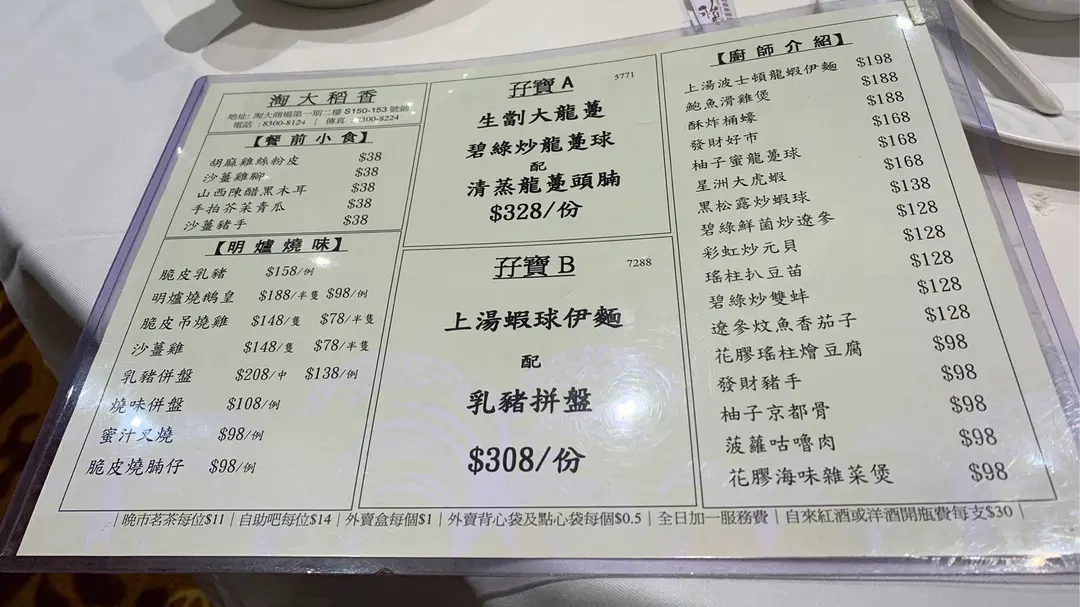 淘大稻香
地址: 淘大商場第一期二樓 S150-153 號舖
電話 : 8300-8124 | 傳真 : 8300-8224
【餐前小食】
胡麻雞絲粉皮 $38
沙薑雞腳 $38
山西陳醋黑木耳 $38
手拍芥茉青瓜 $38
沙薑豬手 $38
【明爐燒味】
脆皮乳豬 $158/例
明爐燒鵝皇 $188/半隻 $98/例
脆皮吊燒雞 $148/隻 $78/半隻
沙薑雞 $148/隻 $78/半隻
乳豬併盤 $208/中 $138/例
燒味併盤 $108/例
蜜汁叉燒 $98/例
脆皮燒腩仔 $98/例
孖寶A 5771
生劏大龍躉
碧綠炒龍躉球
配
清蒸龍躉頭腩
$328/份
孖寶B 7288
上湯蝦球伊麵
配
乳豬拼盤
$308/份
【廚師介紹】
上湯波士頓龍蝦伊麵 $198
鮑魚滑雞煲 $188
酥炸桶蠔 $188
發財好市 $168
柚子蜜龍躉球 $168
星洲大虎蝦 $168
黑松露炒蝦球 $138
碧綠鮮菌炒遼參 $128
彩虹炒元貝 $128
瑤柱扒豆苗 $128
碧綠炒雙蚌 $128
遼參炆魚香茄子 $128
花膠瑤柱燴豆腐 $98
發財豬手 $98
柚子京都骨 $98
菠蘿咕嚕肉 $98
花膠海味雜菜煲 $98
| 晚市茗茶每位$11 | 自助吧每位$14 | 外賣盒每個$1 | 外賣背心袋及點心袋每個$0.5 | 全日加一服務費 | 自來紅酒或洋酒開瓶費每支$30 |